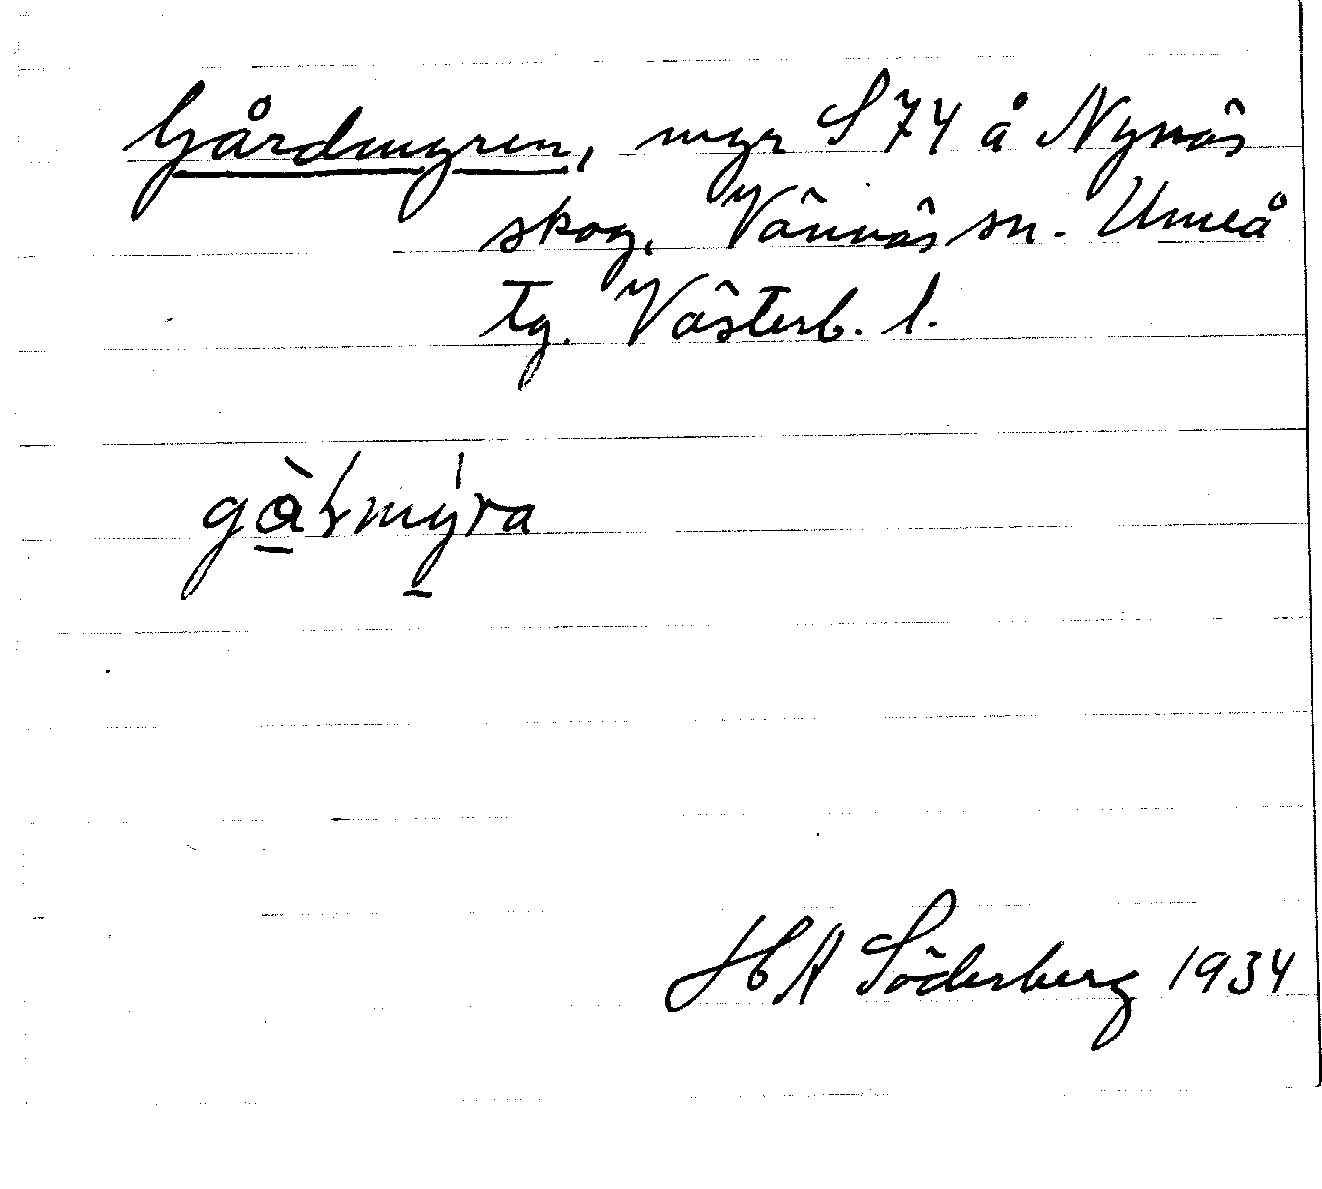 Gårdmyren, myr S 74 å Nynäs
skog, Vännäs sn. Umeå
tg. Västerb. l.
HA Söderberg 1934